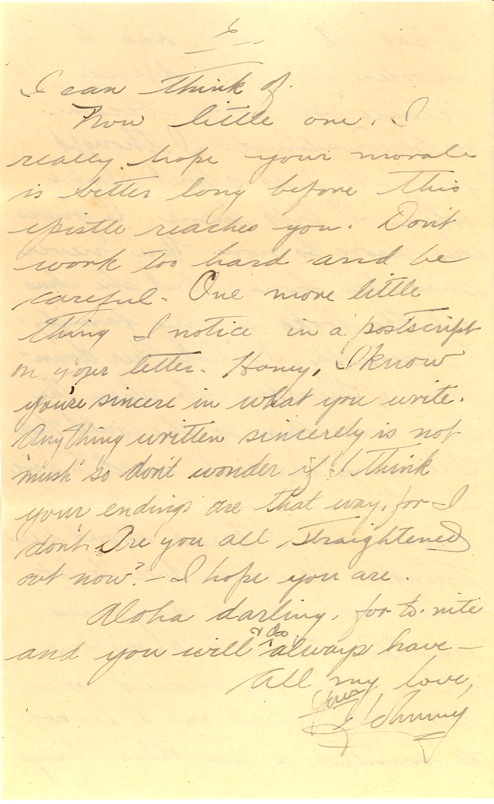 6
I can think of.
Now little one, I
really hope your morale
is better long before this
epistle reaches you. Don't
work too hard and be
careful. One more little
thing I notice in a postscript
on your letter. Honey, I know
you're sincere in what you write.
Anything written sincerely is not
"mush" so don't wonder if I think
your endings are that way, for I
don't. Are you all straightened
out now? - I hope you are.
Aloha darling, for to-nite
& do
and you will always have -
All my love,
Johnny